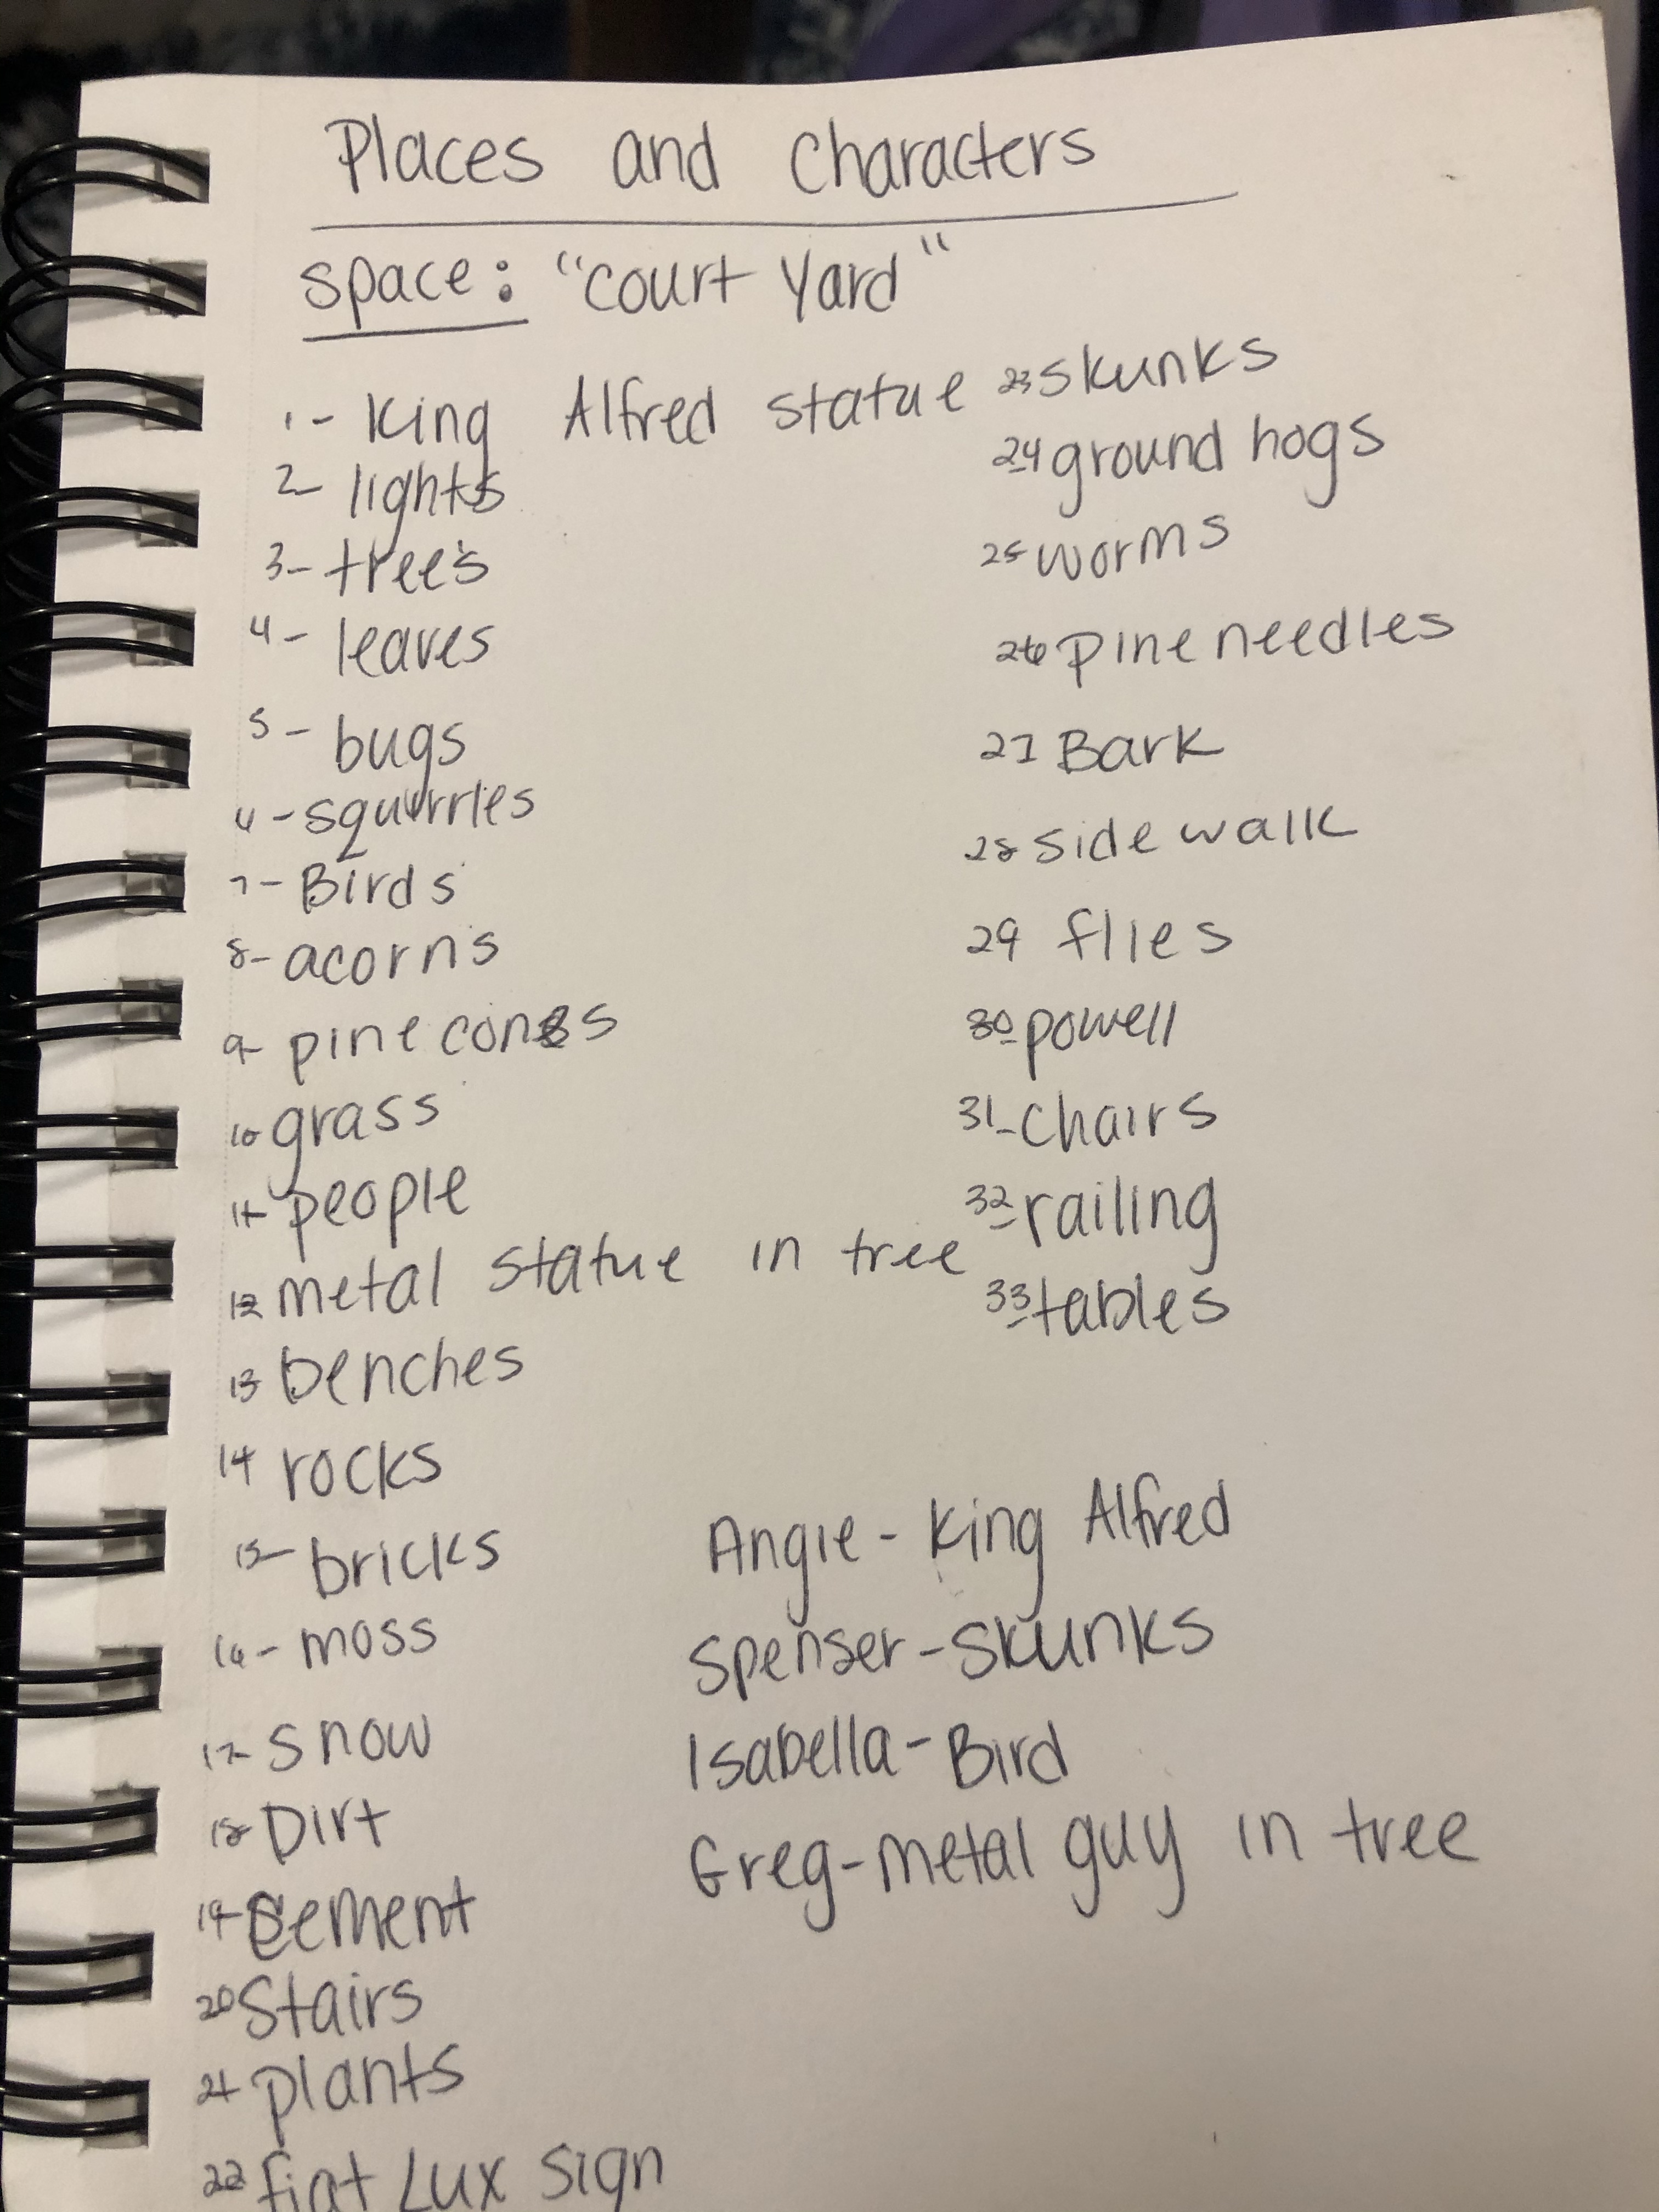 Places and Characters
Space: "Court Yard"
1- King Alfred statue
2- lights
3- trees
4- leaves
5- bugs
6- squirrles
7- Birds
8- acorns
9- pine cones
10 grass
11- people
12 metal statue in tree
13 benches
14 rocks
15- bricks
16- moss
17- snow
18- Dirt
19- cement
20 Stairs
21- plants
22 fiat Lux sign
23 skunks
24 ground hogs
25 worms
26 pine needles
27 Bark
28 side walk
29 flies
30 powell
31- chairs
32- railing
33- tables
Angie - King Alfred
Spenser - Skunks
Isabella - Bird
Greg - metal guy in tree